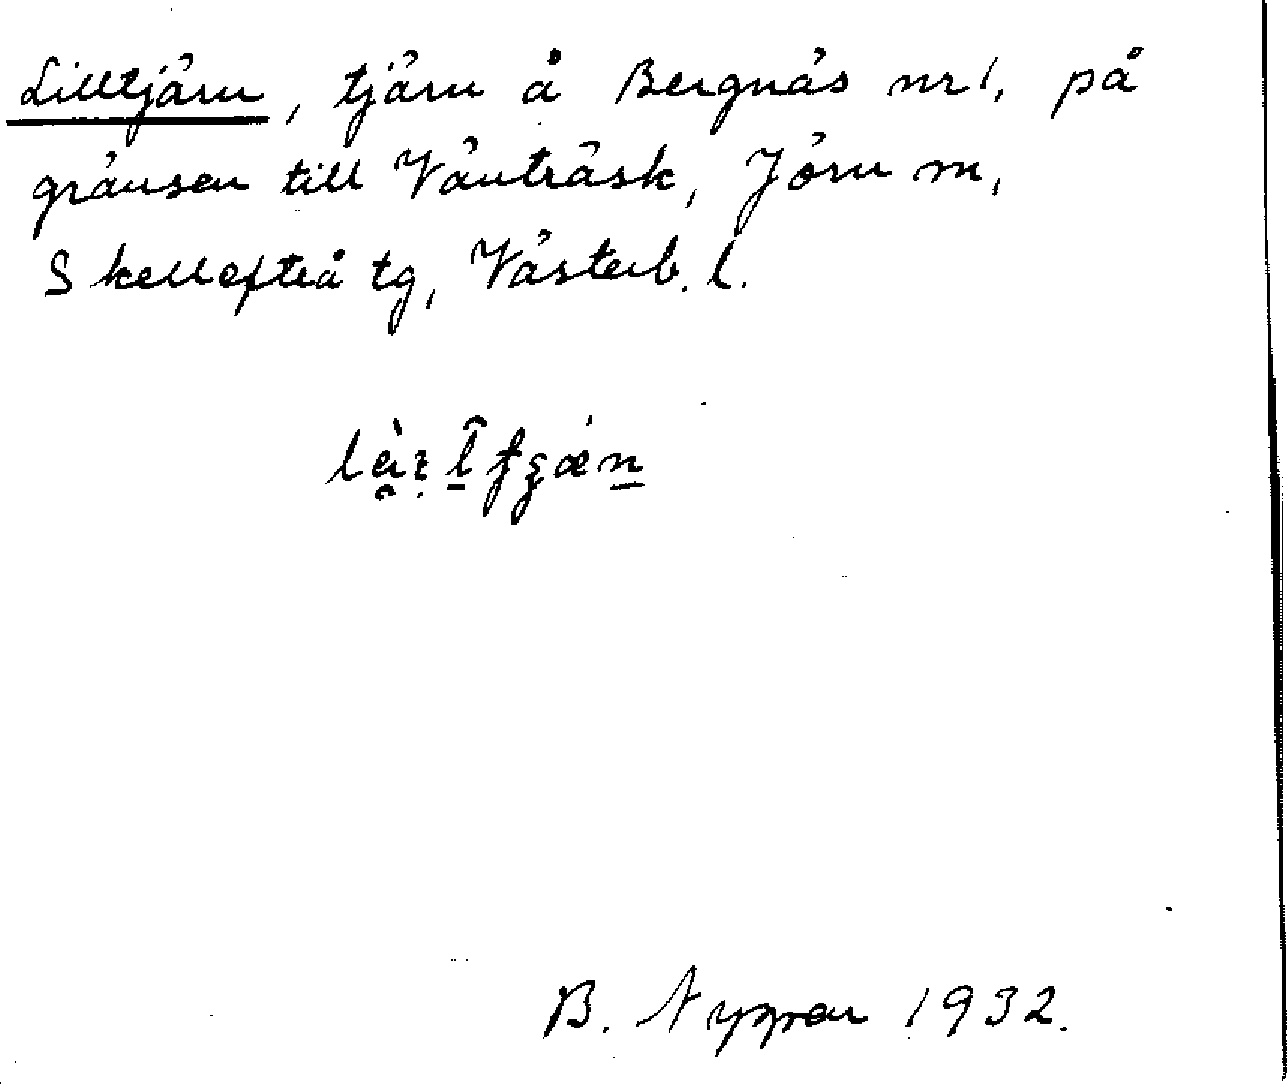 Lilltjärn, tjärn å Bergnäs nr 1, på
gränsen till Vänträsk, Jörn sn,
Skellefteå tg, Västerb. l.
B. Nygren 1932.